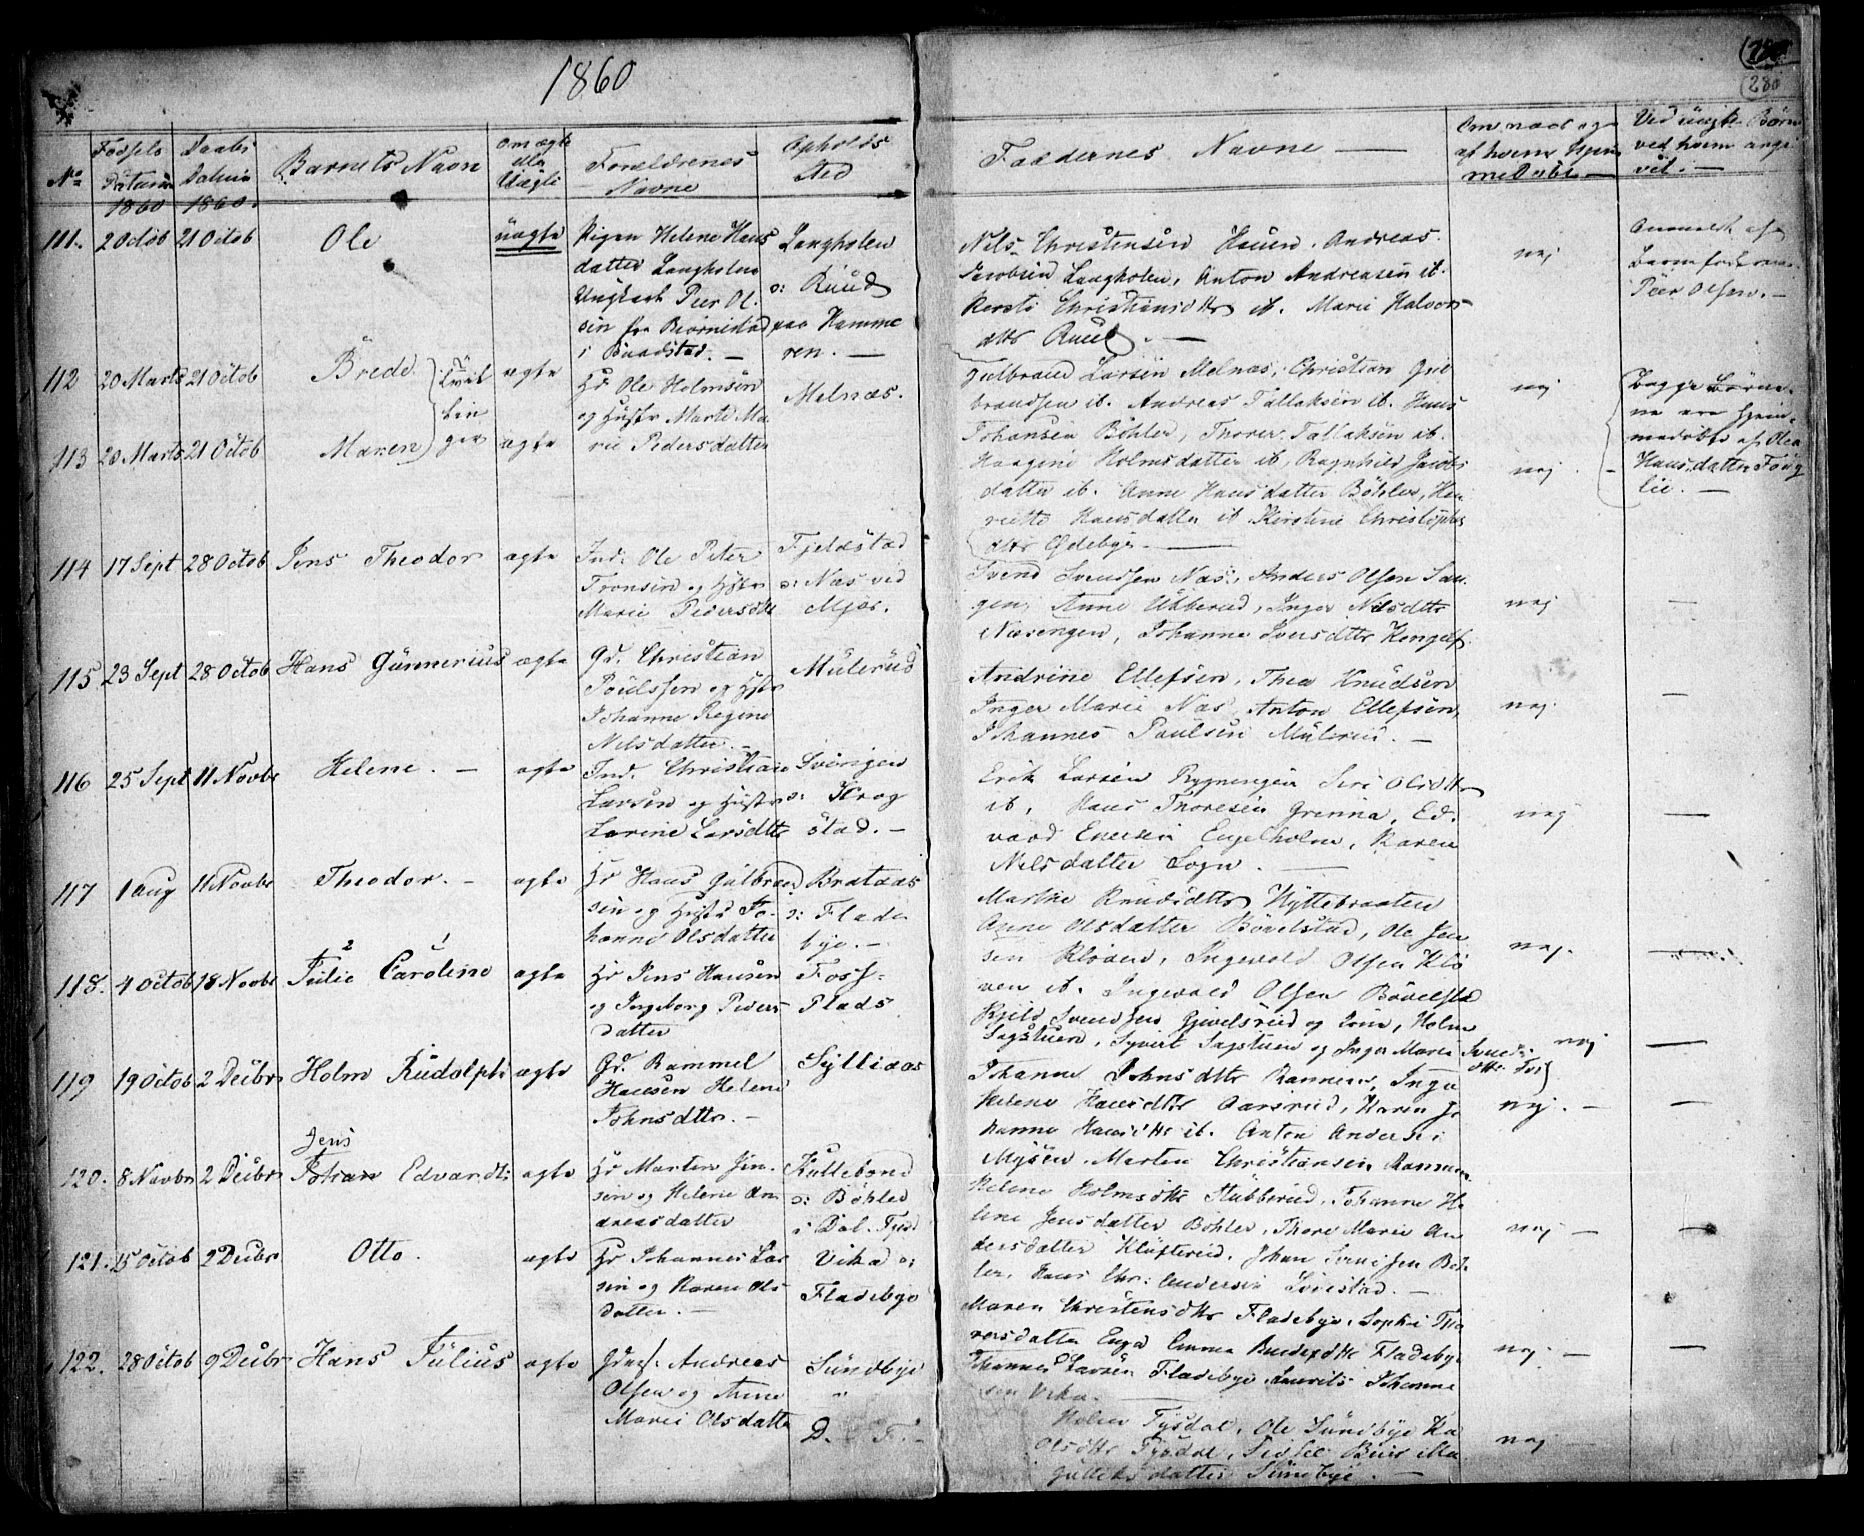 1860
280
No
Fødsels Datum
Daabs Datum
Barnets Navn
Om ægte eller Uægte
Forældrenes Navne
Opholds Sted
Faddernes Navne —
Om næat og af hvem hjemmedøbt —
Ved uægte Børn ved hvem angivet. —
1860 1860.
111. 2 Octob 21 Octob Ole uægte
Pigen Helene Hans
datter Langholen
Ungkarl Peer Ol
sen fra Biørnestad
i Baadstad. —
Langholen
o: Ruud
paa Hamme
ren. —
Nils Christensen Hauen. Andreas
Jacobsen Langholen, Anton Andreasen ib.
Kersti Christiansdtr ib. Marie Halvors
dtr Ruud. —
nej
Anmeldt af
Barnefaderen
Peer Olsen. —
112 20 Marts 21 Octob Brede ægte
113 20 Marts 21 Octob Maren ægte
Tvil
lin
ger
Hr. Ole Holmsen
og Hustr Marte Ma
rie Pedersdatter
Melnæs.
Gulbrand Larsen Melnæs, Christian Gul
brandsen ib. Andreas Tallaksen ib. Hans
Johansen Böhler, Thorer Tallaksen ib.
Haagine Holmsdatter ib, Ragnhild Jacobs
datter ib. Anne Hansdatter Böhler, Hen
riette Hansdatter ib Kirstine Christophers
dtr Ødebye. —
nej
nej
Begge Børne
ne ere hjem
medøbte af Olea
Hansdatter Foug
lie. —
114 17 Sept 28 Octob Jens Theodor ægte
Ind: Ole Peter
Tronsen og Hustr
Marie Pedersdtr
Fjeldstad
o: Næs ved
Mjær.
Svend Svendsen Næs, Anders Olsen San
gen, Anne Ubberud, Inger Nilsdtr
Næsengen, Johanne Iversdtr
nej —
115 23 Sept 28 Octob Hans Gunnerius ægte
Gd. Christian
Poulssen og Hstr
Johanne Regine
Nilsdatter. —
Mülerud
Andrine Ellefsen, Thea Knudsen
Inger Marie Næs, Anton Ellefsen,
Johannes Paulsen Mülerud. —
nej. —
116 25 Sept 11 Novbr Helene. — ægte
Ind. Christian
Larsen og Hustr
Lovine Larsdtr
Svingen
o: Krog
stad. —
Erik Larsen Rygnengen Siri Olsdtr
ib, Hans Thoresen Grenna, Ed
vard Evensen Engelholm, Karen
Nilsdatter Sogn. —
nej —
117 1 Aug 11 Novbr Theodor. — ægte
Hr Hans Gulbrand
sen og Hustr Jo
hanne Olsdatter
Brataas
o: Flade
bye. —
Marthe Knudsdtr Hyttebraaten
Anne Olsdatter Bövelstad, Ole Jen
sen Klöven, Ingevald Olsen Klö
ven ib. Ingevald Olsen Bövelstad
nej. —
118. 4 Octob 18 Novbr Julie Caroline ægte
2 1
Hr Jens Hansen
og Ingeborg Peders
datter
Foss-
Plads
Kjeld Svendsen Gjivelsrud og Kone, Holm
Sagstuen, Syvert Sagstuen og Inger Marie Svends
dtr Fos
nej —
119 19 Octob 2 Decbr Holm Rudolph ægte
Gd. Rammel
Hansen Helene
Johnsdtr. —
Syltiaas
Johanne Johnsdtr Rammen, Inge
Helene Hansdtr Aarsrud, Karen Jo
hanne Hansdtr ib. Anton Andersen
Mysen. Morten Christiansen
nej. — —
120. 8 Novbr 2 Decbr Jens Johan Edvardt ægte
Hr Morten Jen
sen og Helene An
dreasdatter
Kullebund
o: Böhler
i Dal.
Helene Holmsdtr Stubberud, Johanne He
lene Jensdatter Böhler, Thore Marie An
dersdatter Klöfterud, Johan Svendsen Böh
ler, Hans Chr: Andersen
nej — —
121. 15 Octob 2 Decbr Otto. ægte
Hr Johannes Lar
sen og Karen Ols
datter. —
Vika o:
Fladebye
Maren Christensdtr Fladebye, Sophie Tho
resdatter Enga Emma Fladebye
Johannes Larsen Fladebye, Laurits Johanne
sen Vika. —
nej — —
122. 28 Octob 9 Decbr Hans Julius ægte
Andreas
Olsen og Anne
Marie Olsdatter
Sundbye
"
D.
Holm Tysdal, Ole Sundbye
Olsdtr Tysdal,
Gulliksdatter Sundbye. —
nej